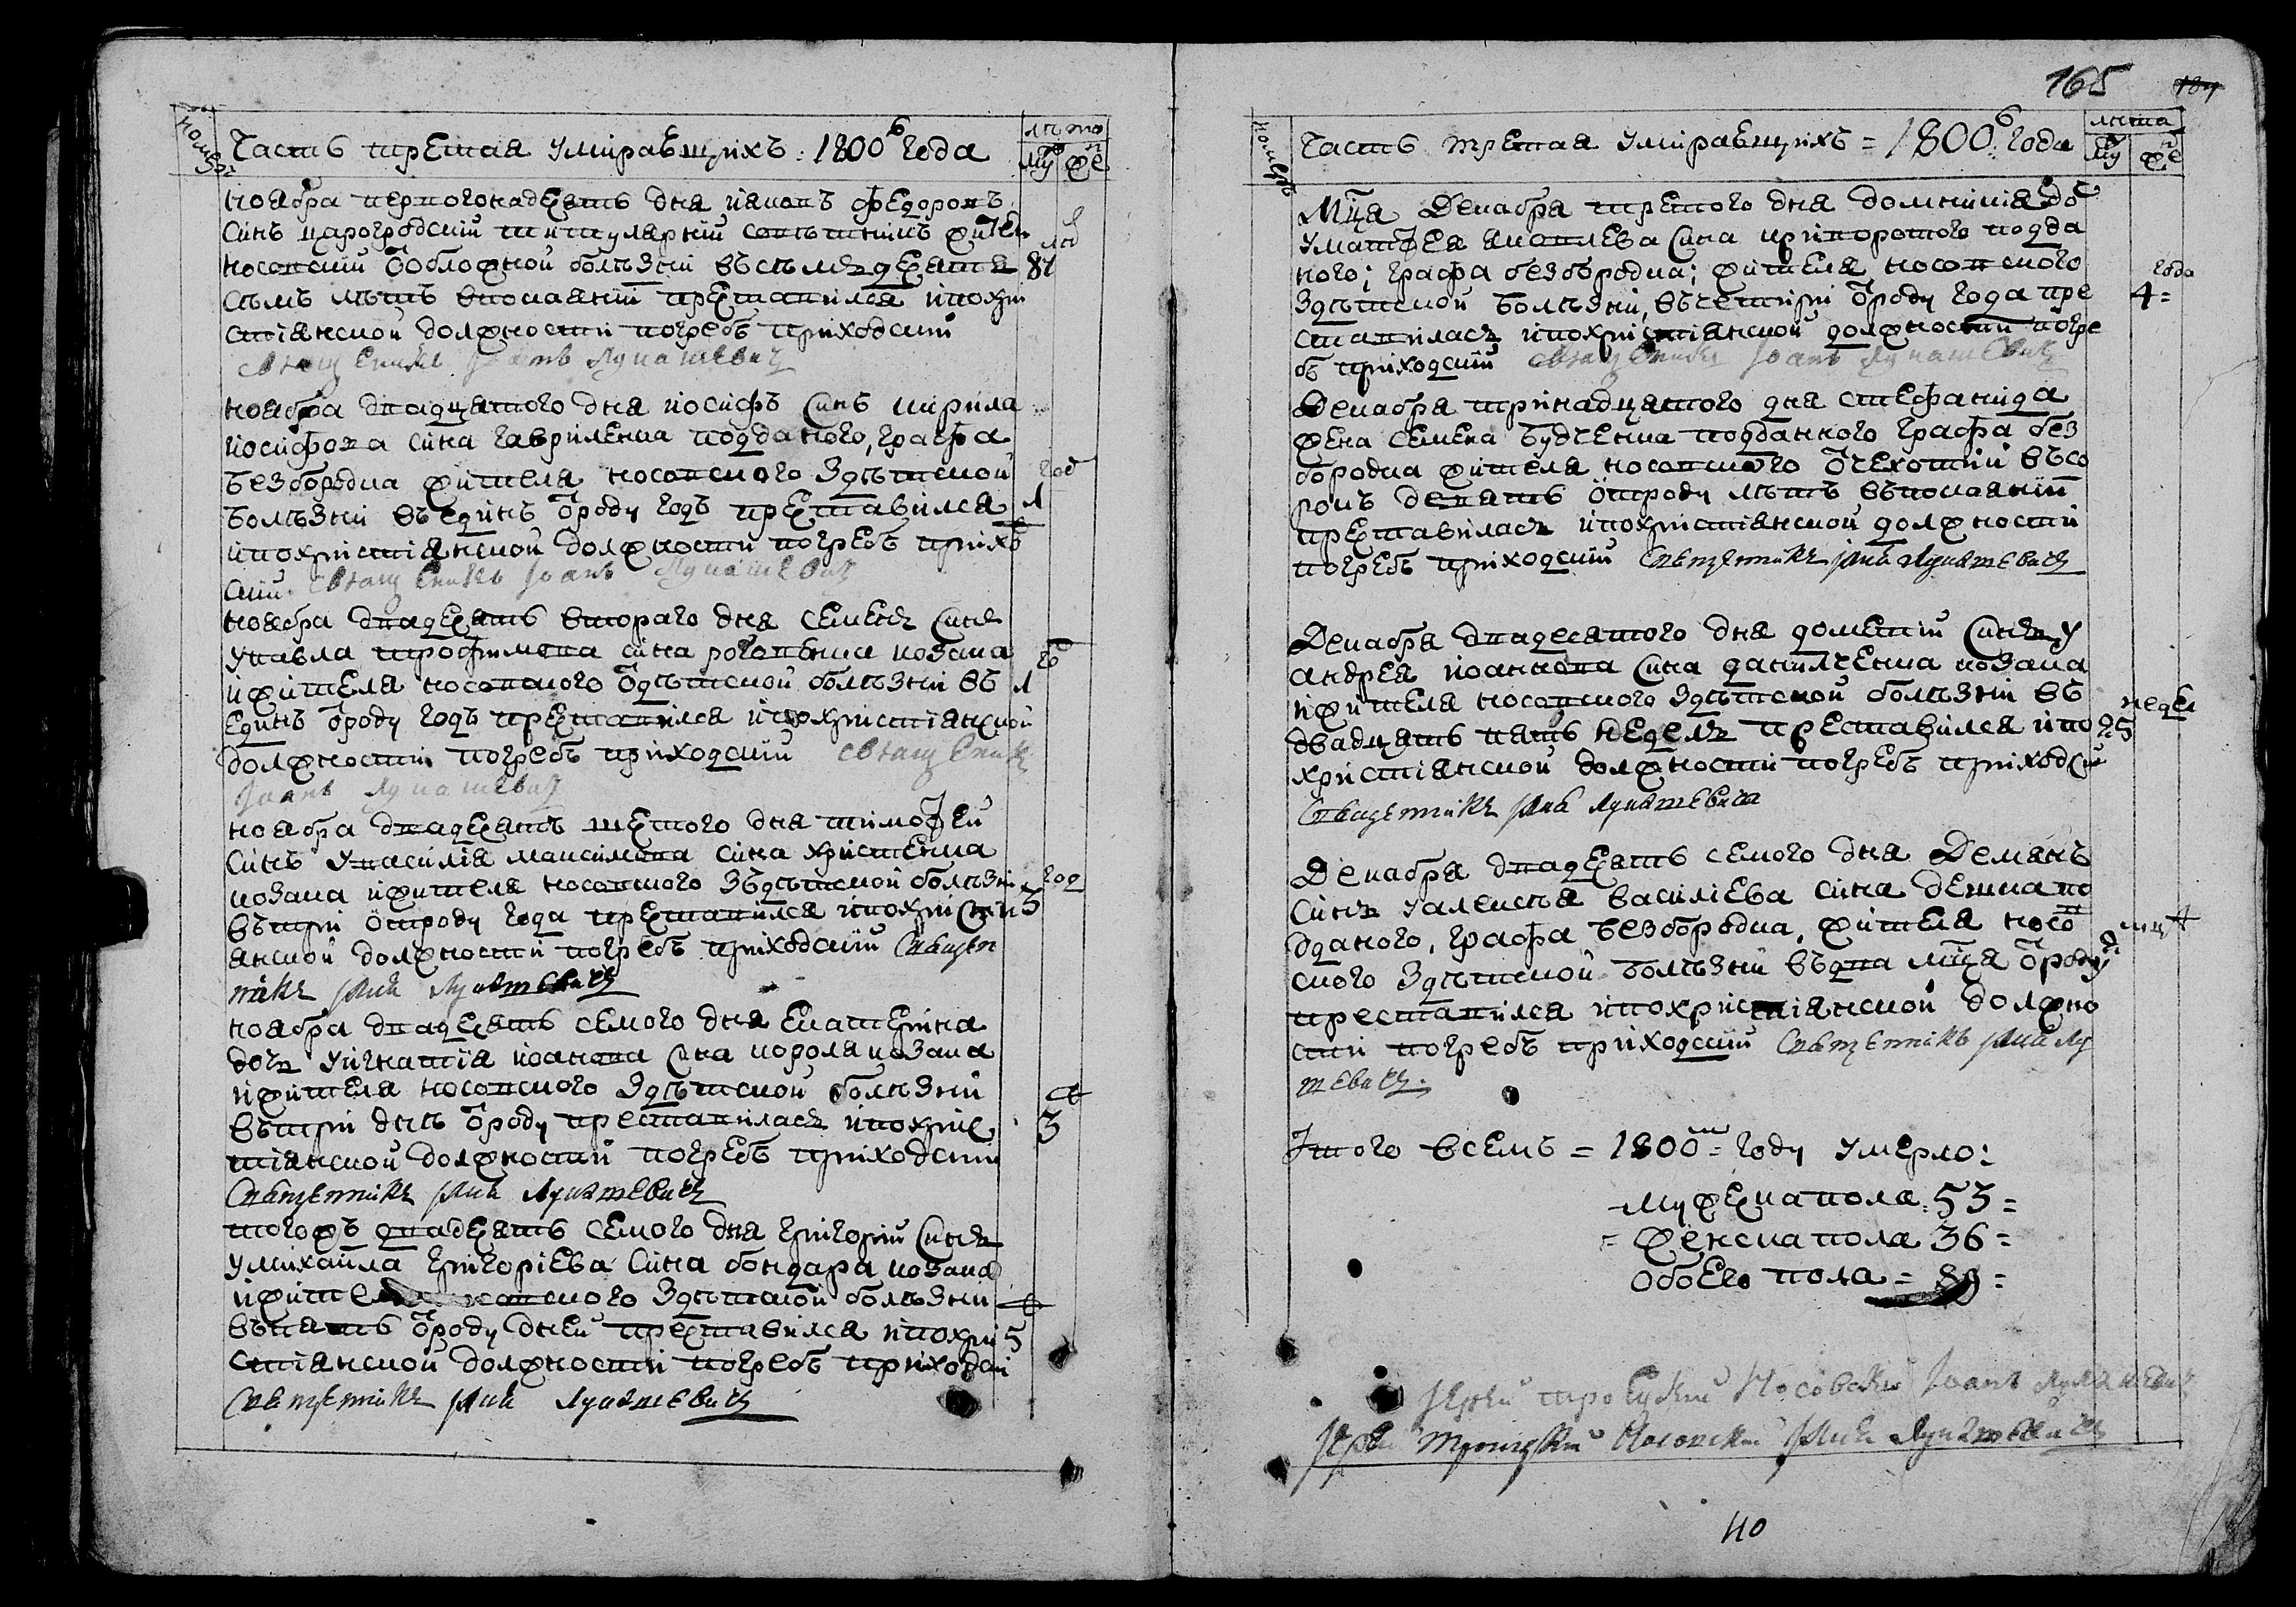 номеръ
Часть третая умираввщихъ: 1800го года
лѣта
му
же
ноября первогонадесять дня иаковъ федоровъ
синъ царогродский титулярний совѣтникъ жител
носовский ѿобложной болѣзни въсѣмьдесятъ 87
сѣмъ лѣтъ впокаянии преставился ипохри
стіянской должности погребъ приходский
священикъ Іоанъ Лукашевич
ноября двадцятого дня иосифъ синъ кирила
иосифова сина гавриленка подданого, графа
безбородка жителя носовского здѣшной год
болѣзни въединъ ѿроду годъ преставился 1
ипохристіянской должности погребъ прихо
ский священикъ Іоанъ Лукашевич
ноября двадесять второго дня семенъ синъ
упавла трофимова сина козака
ижителя носовского ѿздѣшной болѣзни въ 1
единъ ѿроду годъ преставился ипохристіянской
должности погребъ приходский священикъ
Іоанъ Лукашевич
ноября двадесять шестого дня тимоѳей
синъ увасиліа максимова сина христенка
козака ижителя носовского здѣшной болѣзни год
вътри ѿроду года преставился ипохристи 3
янской должности погребъ приходский Священ
никъ Іоанъ Лукашевичъ
ноября двадесять семого дня екатерина
дочь уигнатіа иоанова сина короля козака
ижителя носовского здѣшной болѣзни
вътри дни ѿроду преставилася ипохрис 3
тіянской должности погребъ приходский
Священникъ Іоанъ Лукашевичъ
тогожъ двадесять семого дня григорий синъ
умихайла григоріева сина бондара козака
ижителя носовского здѣшной болѣзни
въпять ѿроду дней преставился ипохри 5
стіянской должности погребъ приходский
Священникъ Іоанъ Лукашевичъ
165
номеръ
Часть третая умираввщихъ = 1800го года
лѣта
му
же
Мця Декабря третого дня домникия дос
уматѳея яковлева сина криворотого подда
ного; графа безбородка; жителя носовского года
здѣшной болѣзни, въчетири ѿроду года пре 4=
ставилася ипохристіянской должности погре
бъ приходский священикъ Іоанъ Лукашевичъ
Декабря тринадцятого дня стефанида
жена семена будченка подданного графа без
бородка жителя носовского въсо
рокъ девять ѿтроду лѣтъ въпокаянии
преставилася ипохристіянской должности
погребъ приходский Священникъ Іоанъ Лукашевичъ
Декабря двадесятого дня дометий синъ у
андрея иоаннова сина данилченка козака
ижителя носовского здѣшной болѣзни въ недел
двадцять пять неделъ преставился ипо 25
христіянской должности погребъ приходский
Священникъ Іоанъ Лукашевичъ
Декабря двадесять семого дня Демянъ
синъ уалексѣя василіева сина по
дданого, графа безбородка, жителя носо
ского здѣшной болѣзни въдва мця ѿроду 2
преставился ипохристіянской должно
сти погребъ приходский Священникъ Іоанъ Лу
шевичъ.
Итого всемъ = 1800мъ= году умерло:
мужеска пола: 53=
= женска пола 36=
обоего пола = 89=
Іерей троецкий Носовский Іоанъ Лукашевич
Іерей Троицкий Носовский Іоанъ Лукашевичъ
40